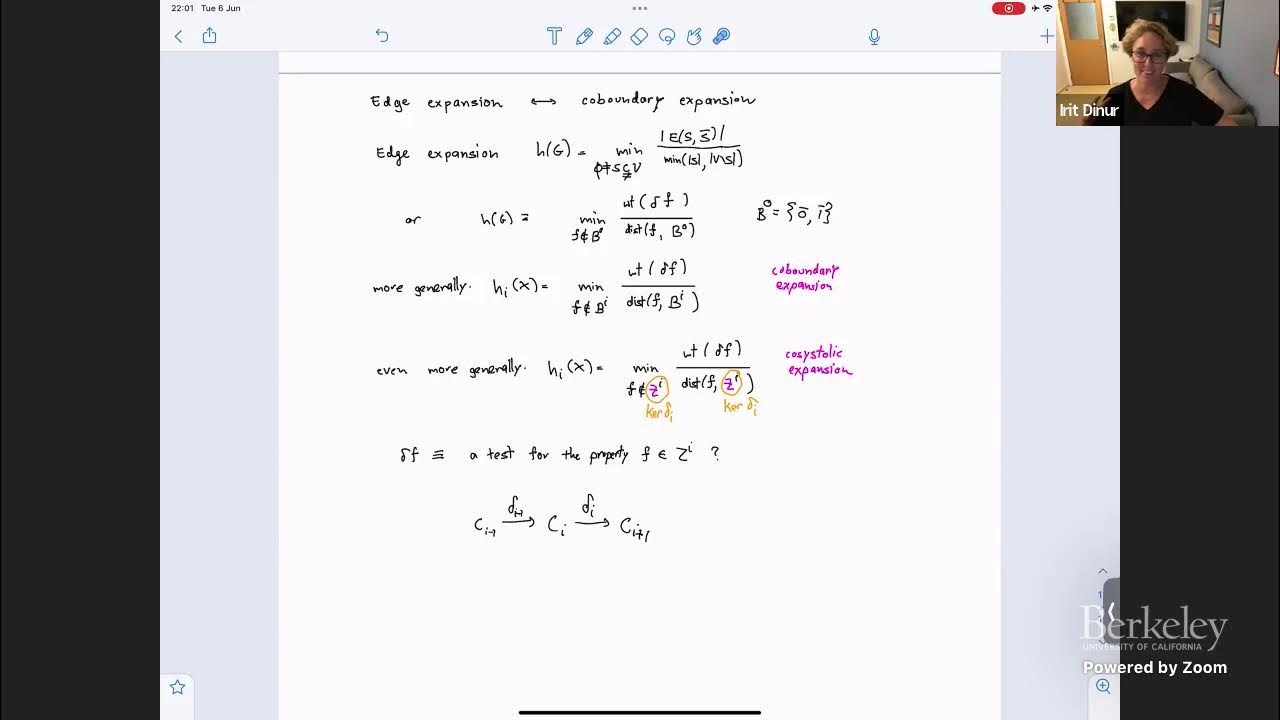 22:01 Tue 6 Jun
Irit Dinur
Edge expansion ↔ coboundary expansion
Edge expansion h(G) = min_{∅≠S⊊V} |E(S, S̄)| / min(|S|, |V\S|)
or h(G) = min_{f∉B⁰} wt(δf) / dist(f, B⁰) B⁰ = {0̄, 1̄}
more generally. hᵢ(X) = min_{f∉Bⁱ} wt(δf) / dist(f, Bⁱ) coboundary
expansion
even more generally. hᵢ(X) = min_{f∉Zⁱ} wt(δf) / dist(f, Zⁱ) cosystolic
expansion
ker δᵢ ker δᵢ
δf ≡ a test for the property f ∈ Zⁱ ?
C_{i-1} →^{δ_{i-1}} C_i →^{δ_i} C_{i+1}
Berkeley
UNIVERSITY OF CALIFORNIA
Powered by Zoom